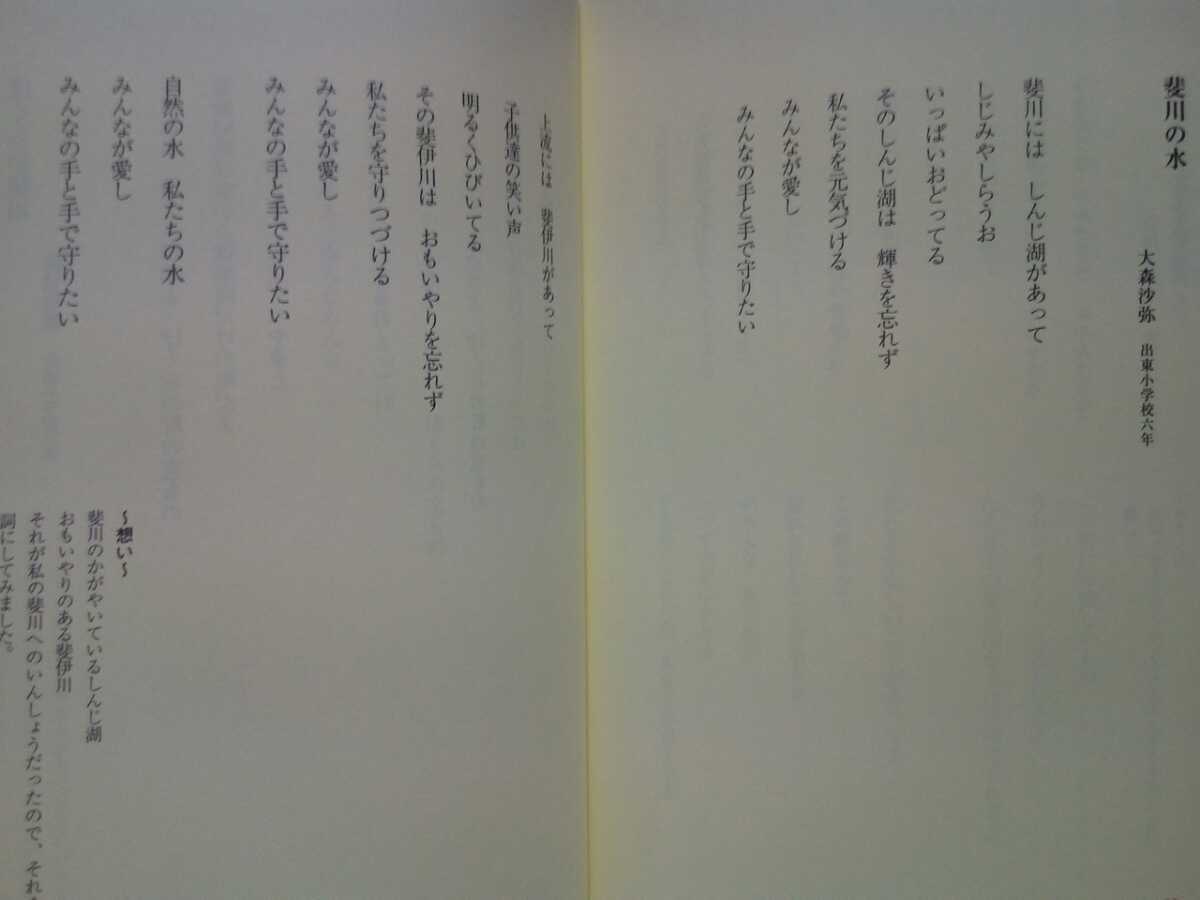 斐川の水
大森沙弥　出東小学校六年
斐川には　しんじ湖があって
しじみやしらうお
いっぱいおどってる
そのしんじ湖は　輝きを忘れず
私たちを元気づける
みんなが愛し
みんなの手と手で守りたい
上流には　斐伊川があって
子供達の笑い声
明るくひびいてる
その斐伊川は　おもいやりを忘れず
私たちを守りつづける
みんなが愛し
みんなの手と手で守りたい
自然の水　私たちの水
みんなが愛し
みんなの手と手で守りたい
～想い～
斐川のかがやいているしんじ湖
おもいやりのある斐伊川
それが私の斐川へのいんしょうだったので、それを
詞にしてみました。